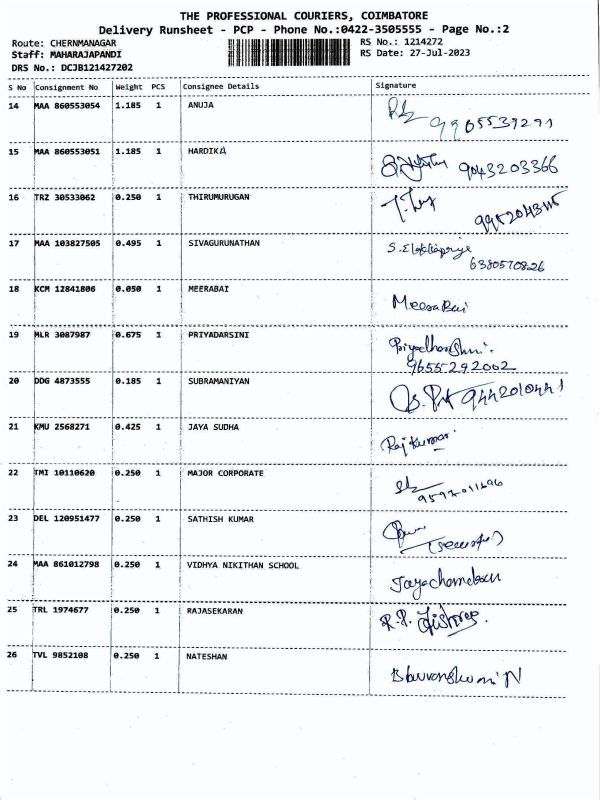 THE PROFESSIONAL COURIERS, COIMBATORE
Delivery Runsheet - PCP - Phone No.:0422-3505555 - Page No.:2
Route: CHERNMANAGAR RS No.: 1214272
Staff: MAHARAJAPANDI RS Date: 27-Jul-2023
DRS No.: DCJB121427202
S No Consignment No Weight PCS Consignee Details Signature
14 MAA 860553054 1.185 1 ANUJA
15 MAA 860553051 1.185 1 HARDIKA 9043203366
16 TRZ 30533062 0.250 1 THIRUMURUGAN
17 MAA 103827505 0.495 1 SIVAGURUNATHAN
6380570826
18 KCM 12841806 0.050 1 MEERABAI Meera Bai
19 MLR 3087987 0.675 1 PRIYADARSINI
9655292002
20 DDG 4873555 0.185 1 SUBRAMANIYAN 9442010441
21 KMU 2568271 0.425 1 JAYA SUDHA Rajkumar
22 TMI 10110620 0.250 1 MAJOR CORPORATE
23 DEL 120951477 0.250 1 SATHISH KUMAR
24 MAA 861012798 0.250 1 VIDHYA NIKITHAN SCHOOL
25 TRL 1974677 0.250 1 RAJASEKARAN
26 TVL 9852108 0.250 1 NATESHAN